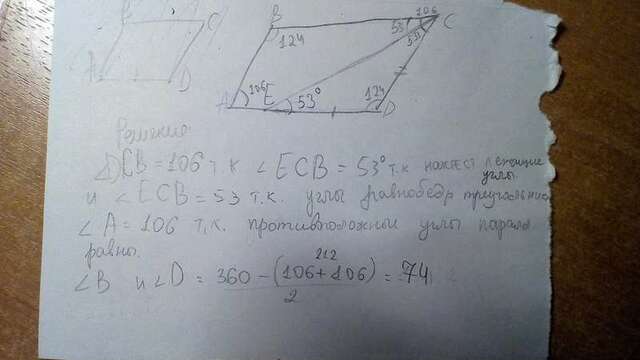 B C
A D
B 106 C
124 53 53
A 106 E 53° 124 D
Решение
∠DCB = 106 т.к ∠ECB = 53° т.к накрест лежащие углы.
и ∠ECB = 53 т.к. углы равнобедр треугольника
∠A = 106 т.к. противоположные углы парал
равны.
212
∠B и ∠D = 360 - (106 + 106) = 74
2